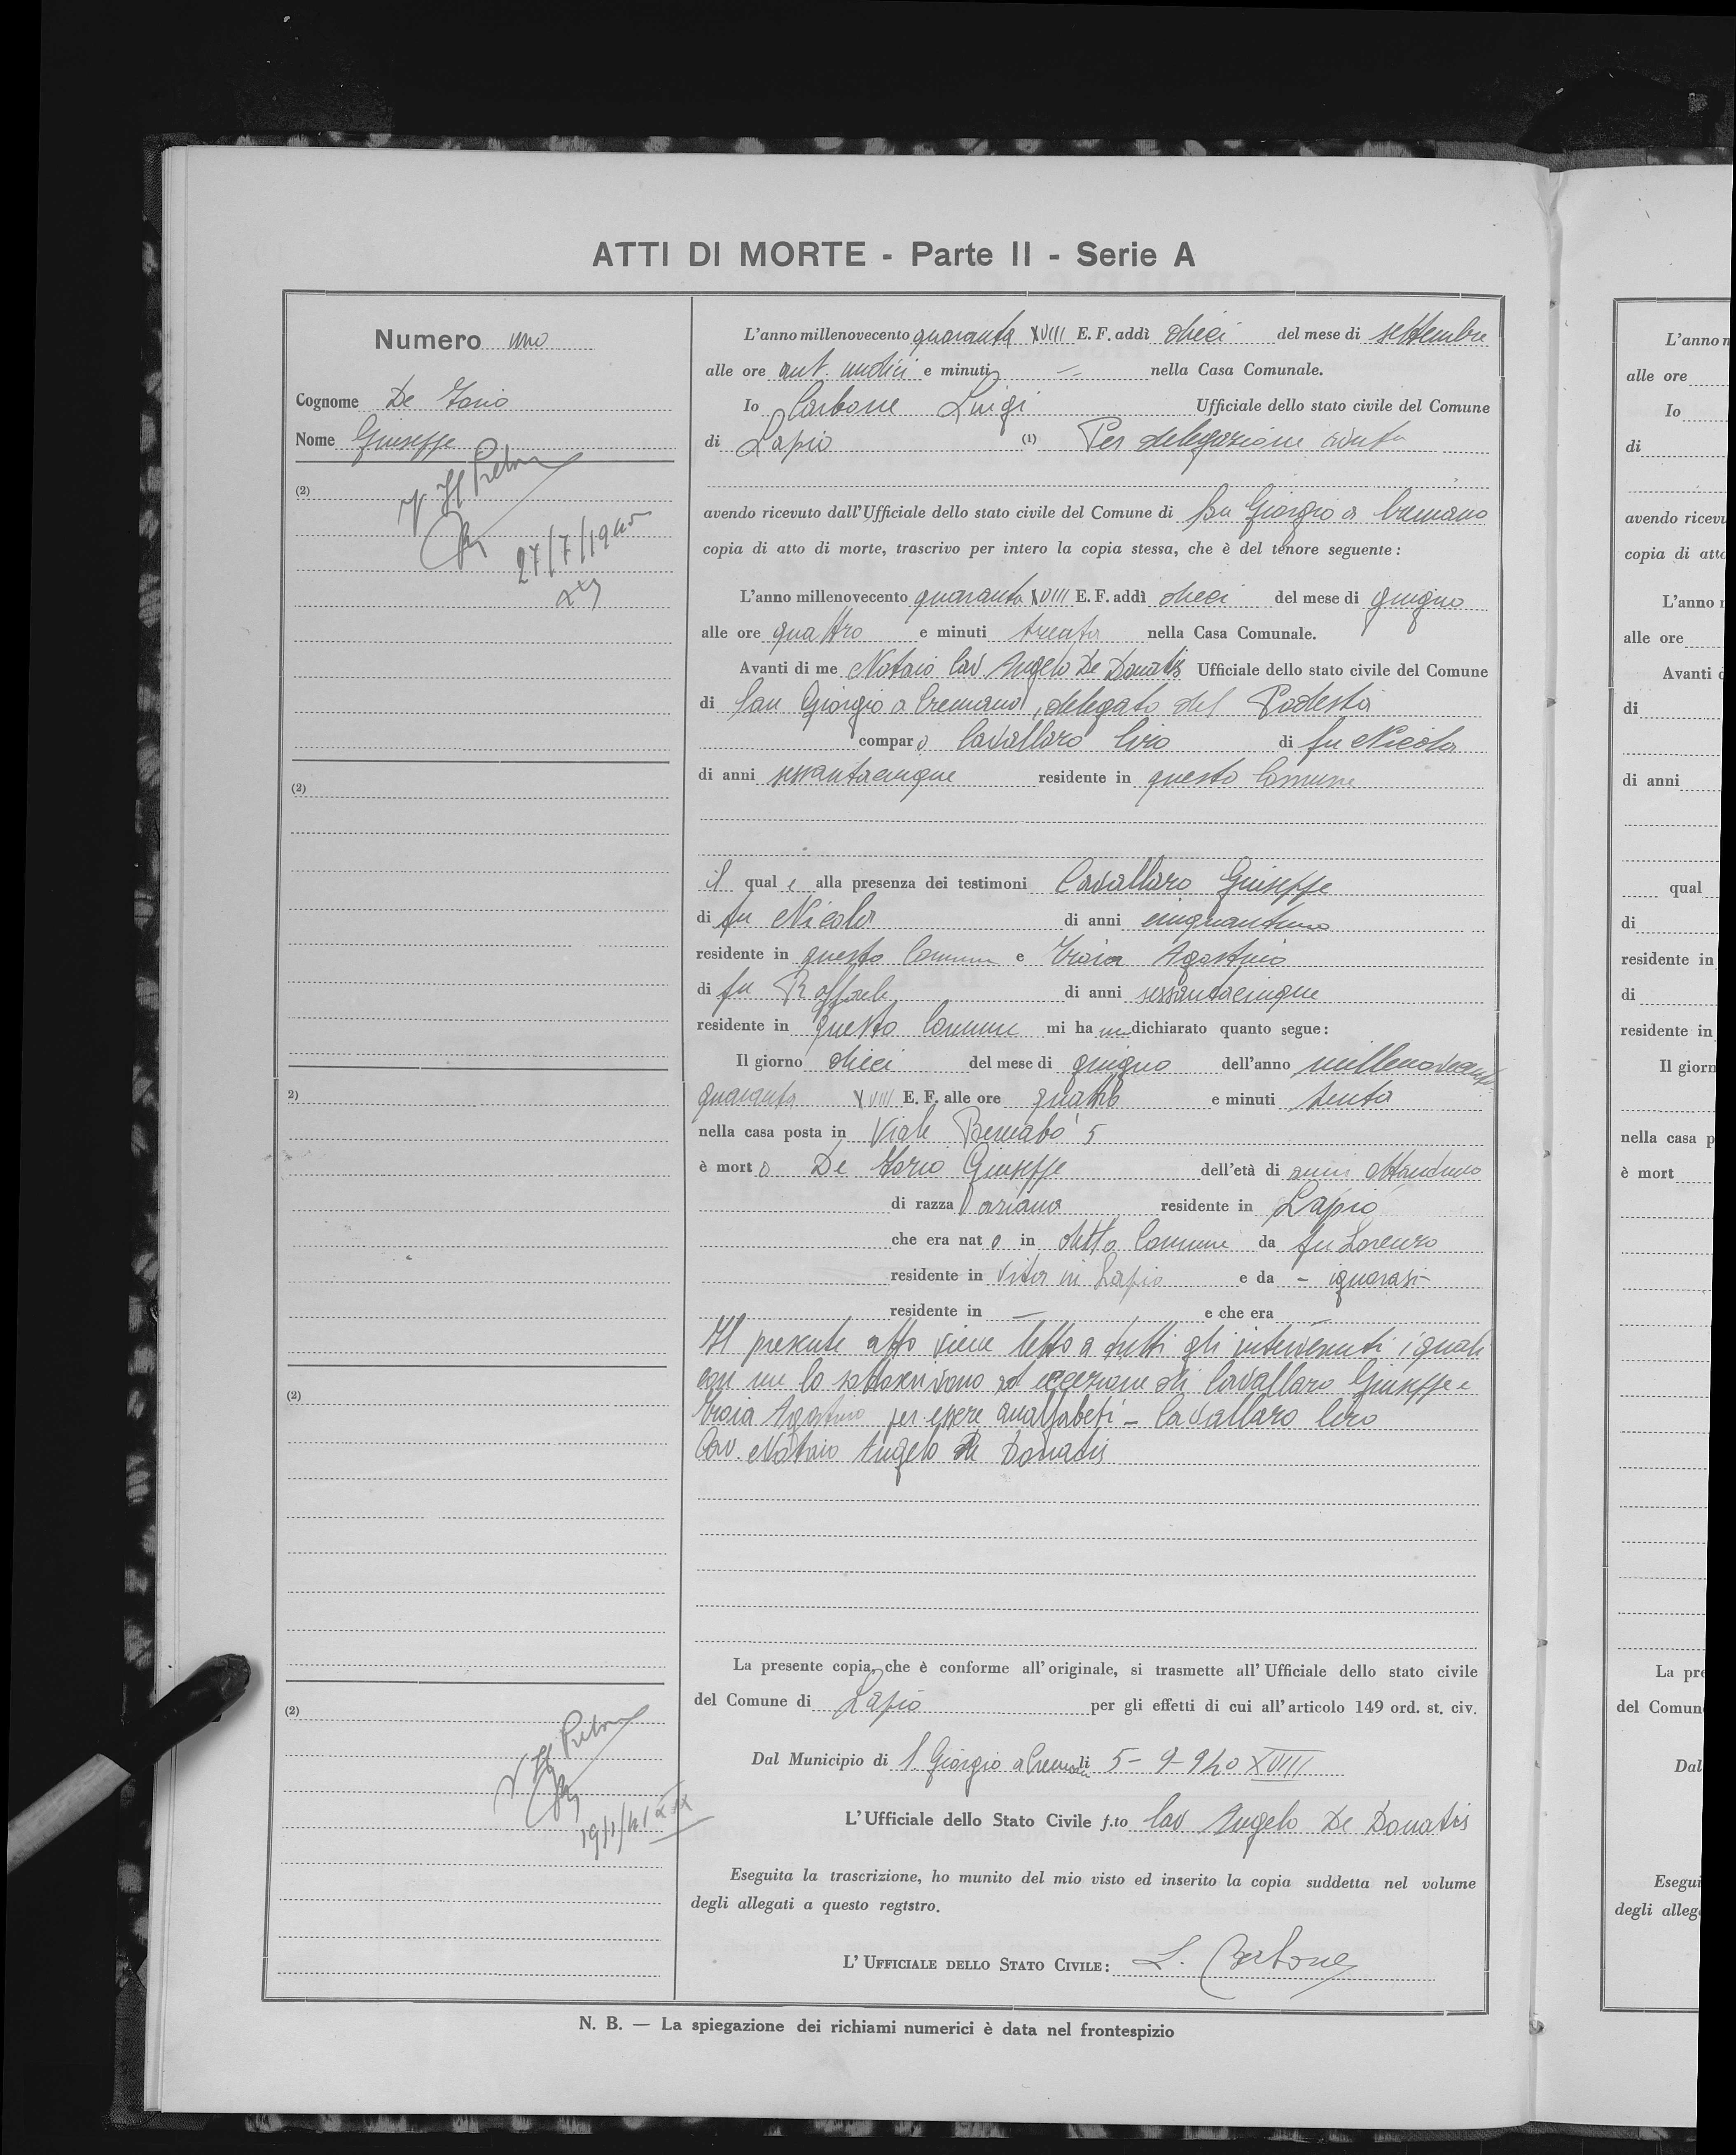 ATTI DI MORTE - Parte II - Serie A
Numero uno
Cognome De Iorio
Nome Giuseppe
(2)
Il Pretore
27/7/1940
(2)
2)
(2)
(2)
Il Pretore
19/1/41 XIX
L'anno millenovecento quaranta XVIII E. F. addì dieci del mese di settembre
alle ore ant. undici e minuti — nella Casa Comunale.
Io Carbone Luigi Ufficiale dello stato civile del Comune
di Lapio (1) Per delegazione avuta
avendo ricevuto dall'Ufficiale dello stato civile del Comune di San Giorgio a Cremano
copia di atto di morte, trascrivo per intero la copia stessa, che è del tenore seguente:
L'anno millenovecento quaranta XVIII E. F. addì dieci del mese di giugno
alle ore quattro e minuti trenta nella Casa Comunale.
Avanti di me Notaio Cav Angelo De Donatis Ufficiale dello stato civile del Comune
di San Giorgio a Cremano, delegato del Podestà
compar o Cavallaro Ciro di fu Nicola
di anni sessantacinque residente in questo Comune
il qual e alla presenza dei testimoni Cavallaro Giuseppe
di fu Nicola di anni cinquantuno
residente in questo Comune e Troia Agostino
di fu Raffaele di anni sessantacinque
residente in questo Comune mi ha dichiarato quanto segue:
Il giorno dieci del mese di giugno dell'anno millenovecento
quaranta XVIII E. F. alle ore quattro e minuti trenta
nella casa posta in Viale Bernabò 5
è mort o De Iorio Giuseppe dell'età di anni ottantuno
di razza ariana residente in Lapio
che era nat o in detto Comune da fu Lorenzo
residente in vita in Lapio e da - ignorasi -
residente in — e che era —
Il presente atto viene letto a tutti gli intervenuti i quali
con me lo sottoscrivono ad eccezione di Cavallaro Giuseppe e
Troia Agostino per essere analfabeti - Cavallaro Ciro
Cav. Notaio Angelo De Donatis
La presente copia, che è conforme all'originale, si trasmette all'Ufficiale dello stato civile
del Comune di Lapio per gli effetti di cui all'articolo 149 ord. st. civ.
Dal Municipio di S. Giorgio a Cremano li 5-9-940 XVIII
L'Ufficiale dello Stato Civile f.to Cav Angelo De Donatis
Eseguita la trascrizione, ho munito del mio visto ed inserito la copia suddetta nel volume
degli allegati a questo registro.
L'UFFICIALE DELLO STATO CIVILE: L. Carbone
N. B. — La spiegazione dei richiami numerici è data nel frontespizio
L'anno
alle ore
Io
di
avendo
copia di
L'anno
alle ore
Avanti
di
di anni
qual
di
residente in
di
residente in
Il
nella casa
è mort
La
del
Dal
degli